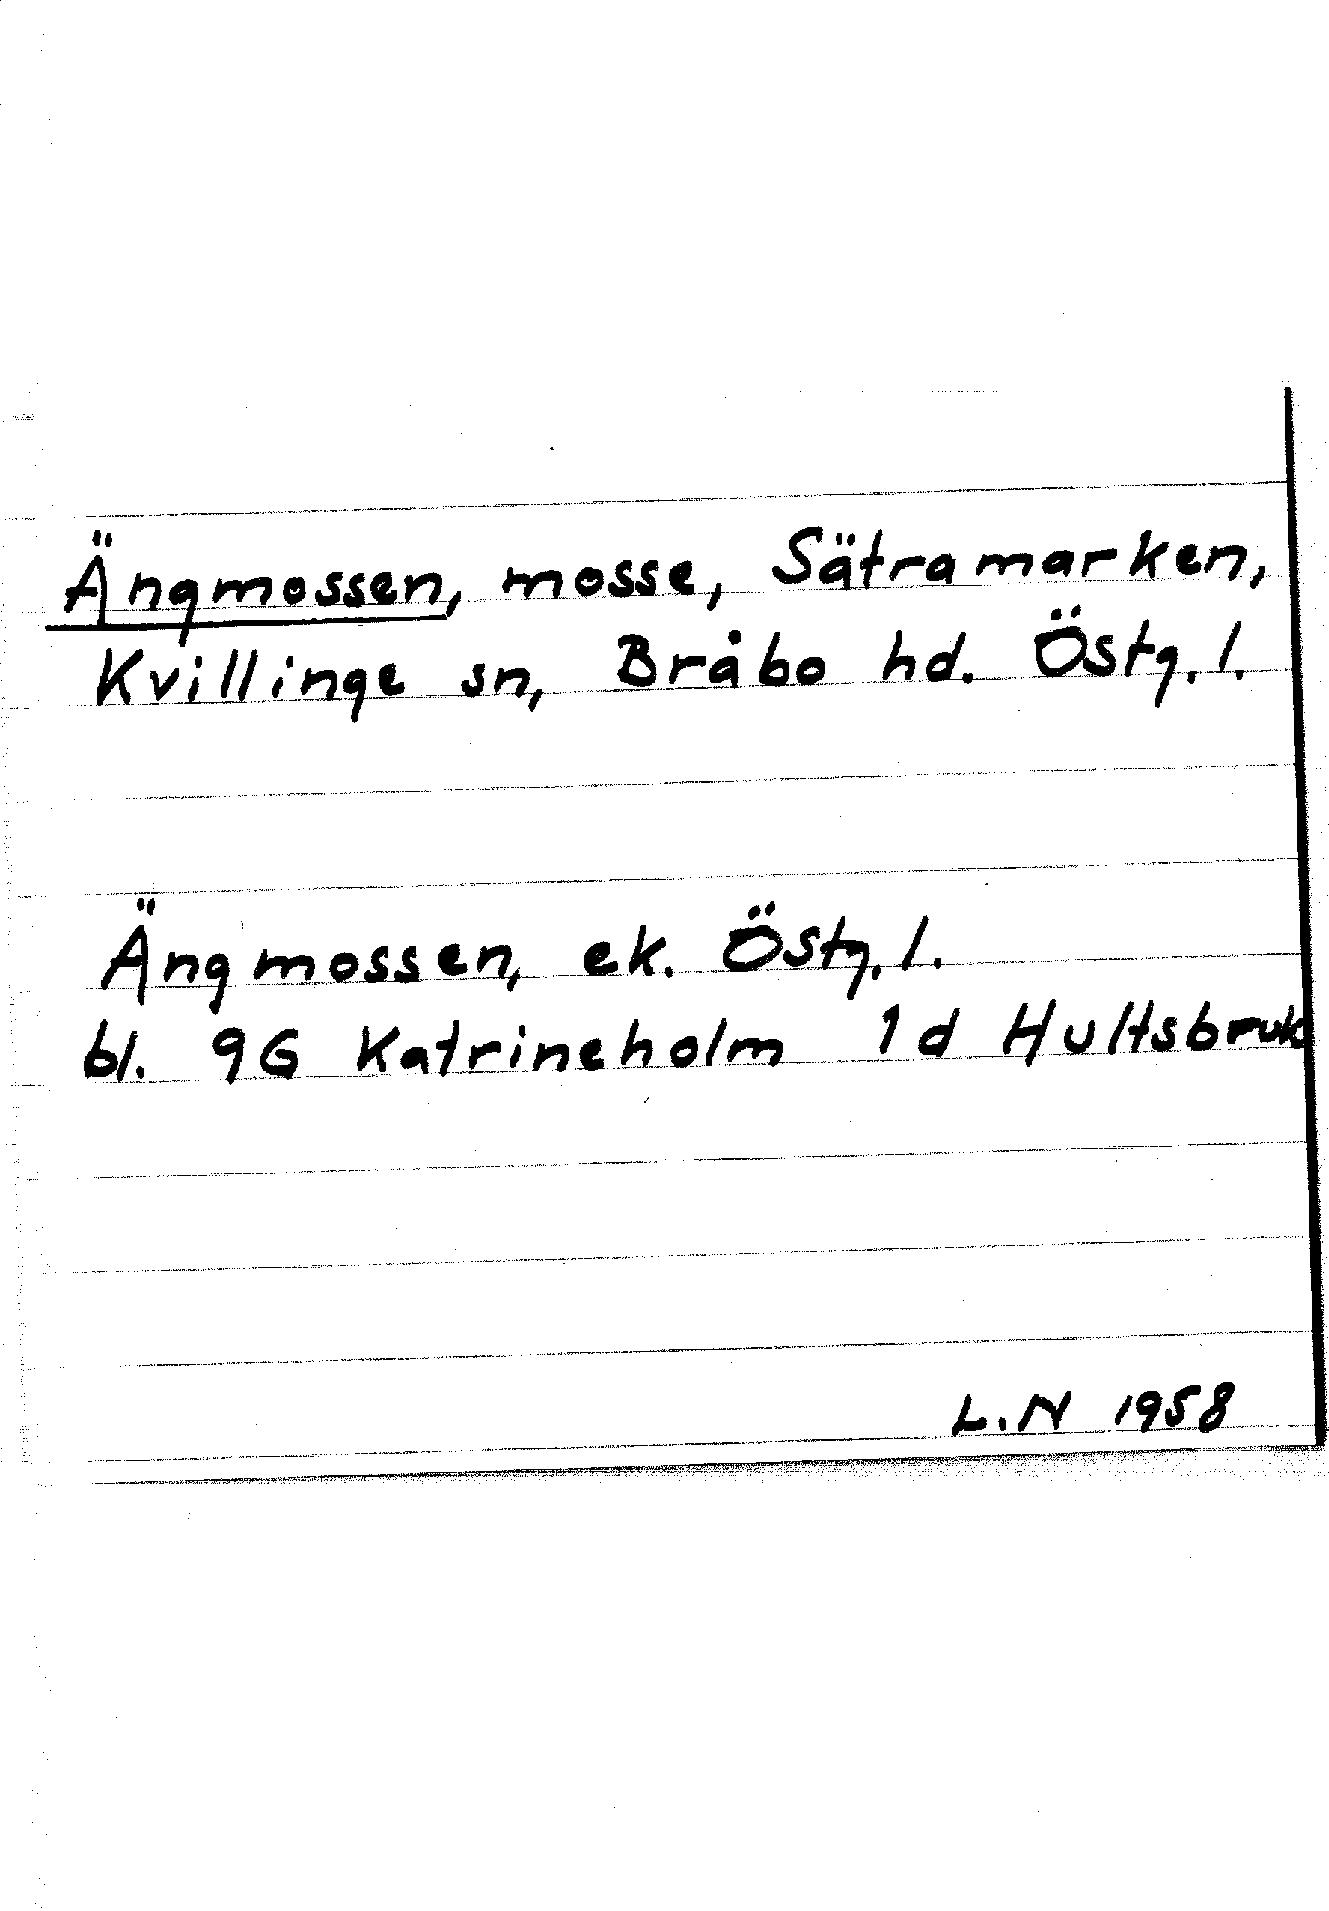 Ängmossen, mosse, Sätramarken,
Kvillinge sn, Bråbo hd. Östg. l.
Ängmossen, ek. Östg. l.
bl. 9G Katrineholm 1d Hultsbruk
L.N 1958